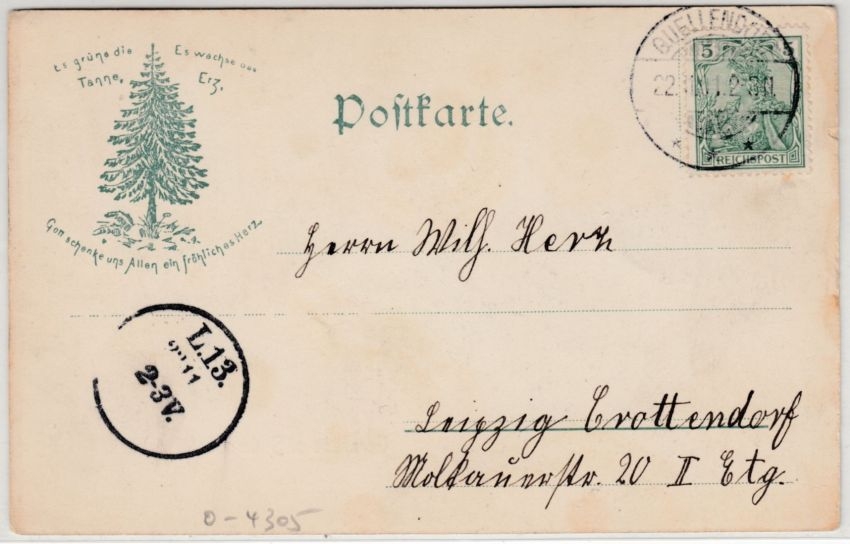 Es grüne die Tanne,
Es wachse das Erz,
Gott schenke uns Allen ein fröhliches Herz
Postkarte.
QUELLENDORF
5
REICHSPOST
Herrn Wilh. Herr
L.13.
11
2-3V.
Leipzig Crottendorf
Molkauerstr. 20 II Etg.
0-4305